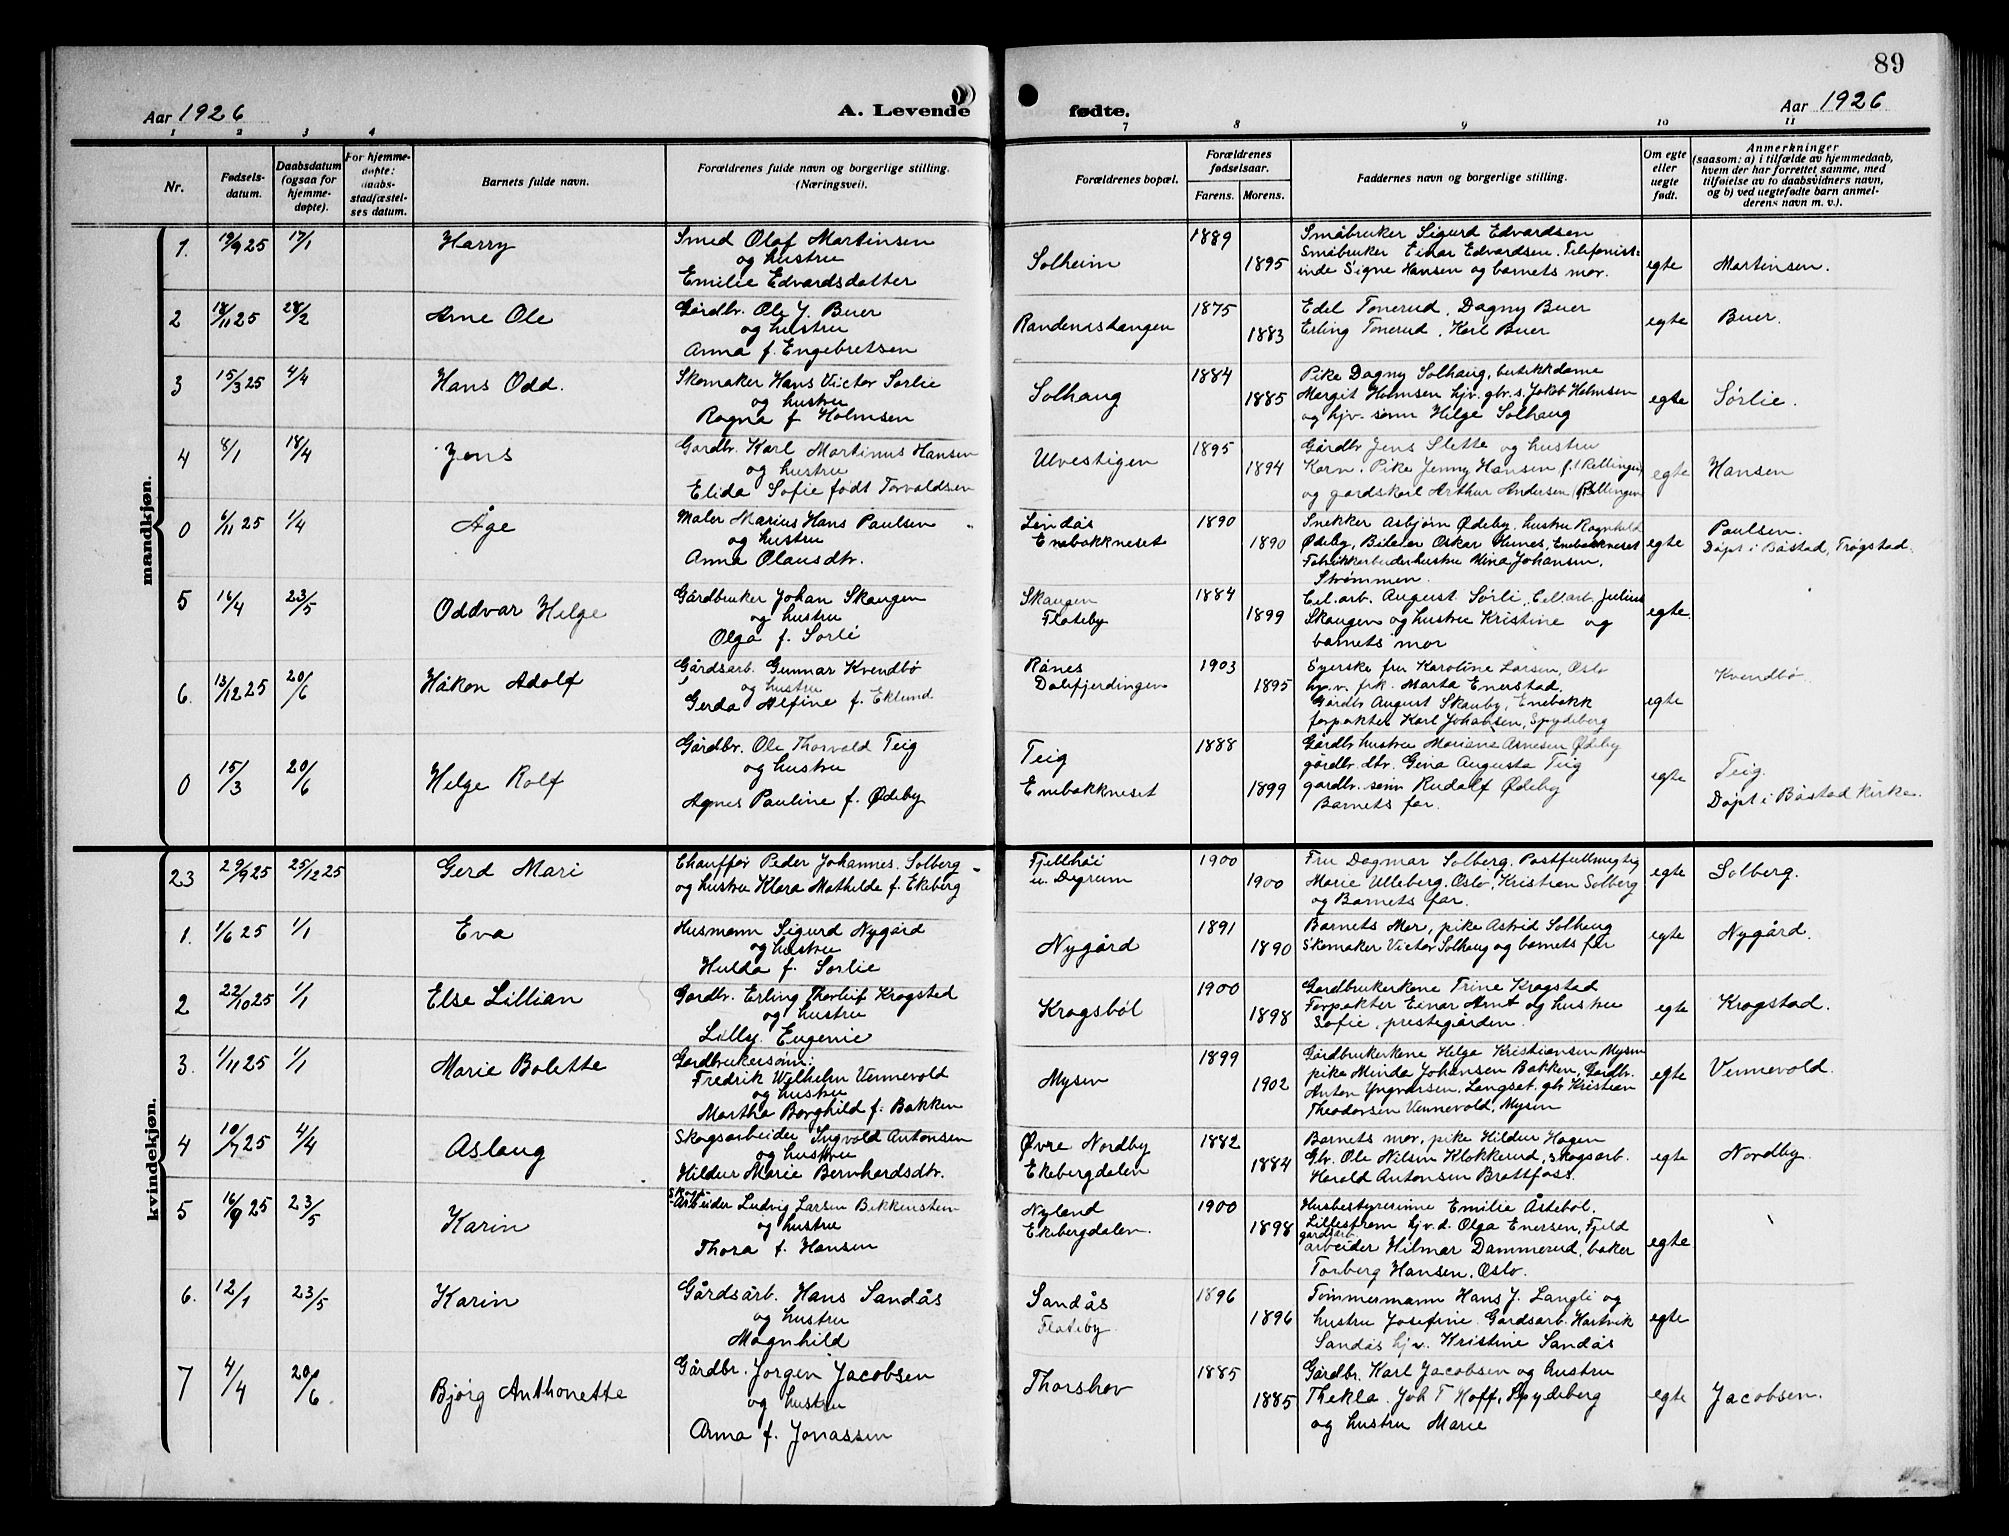 89
Aar 1926
A. Levende fødte.
Aar 1926
1 2 3 4 7 8 9 10 11
Nr.
Fødsels-
datum.
Daabsdatum
(ogsaa for
hjemme-
døpte).
For hjemme-
døpte:
daabs-
stadfæstel-
ses datum.
Barnets fulde navn.
Forældrenes fulde navn og borgerlige stilling.
(Næringsvei).
Forældrenes bopæl.
Forældrenes
fødselsaar.
Farens. Morens.
Faddernes navn og borgerlige stilling.
Om egte
eller
uegte
født.
Anmerkninger
(saasom: a) i tilfælde av hjemmedaab,
hvem der har forrettet samme, med
tilføielse av to daabsvidners navn,
og b) ved uegtefødte barn anmel-
derens navn m. v.).
mandkjøn.
1. 19/9 25 17/1 Harry
Smed Olaf Martinsen
og hustru
Emilie Edvardsdatter
Solheim 1889 1895
Småbruker Sigurd Edvardsen
Småbruker Einar Edvardsen. Telefonist-
inde Signe Hansen og barnets mor.
egte Martinsen.
2 18/11 25 28/2 Arne Ole
Gårdbr. Ole J. Buer
og hustru
Anna f. Engebretsen
Randemstangen 1875 1883
Edel Tonerud, Dagny Buer
Erling Tonerud, Karl Buer
egte Buer.
3 15/3 25 4/4 Hans Odd.
Skomaker Hans Victor Sørlie
og hustru
Ragna f Holmsen
Solhaug 1884 1885
Pike Dagny Solhaug, butikkdame
Margit Holmsen hjv. gbr. s. Jakob Holmsen
og hjv. sønn Helge Solhaug
egte Sørlie.
4 8/1 18/4 Jens
Gardbr. Karl Martinus Hansen
og hustru
Elida Sofie født Torvaldsen
Ulvestigen 1895 1894
Gårdbr Jens Slette og hustru
Karn. Pike Jenny Hansen f.t Rellingen
og gardskarl Arthur Andersen (Rellingen
egte Hansen
0 6/11 25 1/4 Åge
Maler Marius Hans Paulsen
og hustru
Anna Olausdtr.
Lindås
Enebakkneset 1890 1890
Snekker Asbjørn Ødeby, hustru Ragnhild
Ødeby, Bileier Oskar Hunes, Enebakkneset
Fabrikkarbeiderhustru Mina Johansen,
Strømmen.
egte Paulsen.
Døpt i Båstad, Trøgstad.
5 16/4 23/5 Oddvar Helge
Gårdbruker Johan Skaugen
og hustru
Olga f. Sørli
Skaugen
Flateby 1884 1899
Cel.arb. August Sørli, Cell.arb. Julius
Skaugen og hustru Kristine og
barnets mor
egte.
6. 13/12 25 20/6 Håkon Adolf
Gårdsarb. Gunnar Kvendbø
og hustru
Gerda Alfine f. Eklund
Rånes
Dalefjerdingen 1903 1895
Eyerske fru Karoline Larsen, Oslo
hp.v. frk. Marta Enerstad.
Gårdbr August Skauby, Enebakk
forpakter Karl Johansen, Spydeberg
egte Kvendbø
0 15/3 20/6 Helge Rolf
Gårdbr. Ole Thorvald Teig
og hustru
Agnes Pauline f. Ødeby
Teig
Enebakkneset 1888 1899
Gårdbr hustru Mariane Arnesen Ødeby
gårdbr. dtr. Gina Augusta Teig
gardbr. sønn Rudolf Ødeby
Barnets far.
egte Teig.
Døpt i Båstad kirke.
kvindekjøn.
23 29/9 25 25/12 25 Gerd Mari
Chauffør Peder Johannes. Solberg
og hustru Klara Mathilde f. Ekeberg
Fjellhøi
u. Dyrum 1900 1900
Fru Dagmar Solberg. Postfullmegtig
Marie Ulleberg, Oslo, Kristian Solberg
og Barnets far.
egte Solberg.
1. 1/6 25 1/1 Eva
Husmann Sigurd Nygård
og hustru
Hulda f. Sørlie
Nygård 1891 1890
Barnets Mor, pike Astrid Solhaug
Skomaker Victor Solhaug og barnets far
egte Nygård.
2 22/10 25 1/1 Else Lillian
Gardbr. Erling Thorleif Krogstad
og hustru
Lilly Eugenie
Kragsbøl 1900 1898
Gardbrukerkone Trine Krogstad
Forpakter Einar Arnt og hustru
Sofie, prestegården.
egte Krogstad.
3. 1/11 25 1/1 Marie Bolette
Gardbrukersønn.
Fredrik Wilhelm Vennevold
og hustru
Martha Borghild f. Bakken
Mysen 1899 1902
Gårdbrukerkone Helga Kristiansen Mysen
pike Minda Johansen Bakken, Gardbr.
Anton Yngvarsen, Langset. gbr Kristian
Theodorsen Vennevold, Mysen
egte Vennevold.
4 10/7 25 4/4 Aslaug
Skogsarbeider Ingvald Antonsen
og hustru
Hildur Marie Bernhardsdtr.
Øvre Nordby
Ekebergdalen 1882 1884
Barnets mor, pike Hildur Hagen
Gbr. Ole Nilsen Klokkerud, skogsarb.
Harald Antonsen Brattfoss.
egte Nordby.
5 16/9 25 23/5 Karin
Skogs-
Arbeider Ludvig Larsen Bekkensten
og hustru
Thora f. Hansen
Nyland
Ekebergdalen. 1900 1898
Husbestyrerinne Emilie Åstebøl.
Lillestrøm hjv.d. Olga Enersen, Fjeld
gardsarb.
arbeider Hilmar Dammerud, baker
Torberg Hansen. Oslo.
egte
6. 12/1 23/5 Karin
Gårdsarb. Hans Sandås
og hustru
Magnhild
Sandås
Flateby. 1896 1896
Tømmermann Hans J. Langli og
hustru Josefine. Gårdsarb. Hartvik
Sandås hjv. Kristine Sandås
egte
7 4/4 20/6 Bjørg Anthonette
Gårdbr. Jørgen Jacobsen
og hustru
Anna f. Jonassen
Thorshov 1885 1885
Gårdbr. Karl Jacobsen og hustru
Thekla. Joh T Hoff, Spydeberg
og hustru Marie
egte Jacobsen.